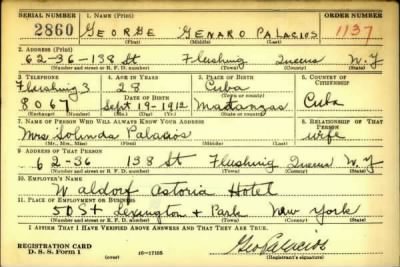 SERIAL NUMBER 1. NAME (Print) ORDER NUMBER
2860 GEORGE GENARO PALACIOS 1137
(First) (Middle) (Last)
2. ADDRESS (Print)
62-36-138 St Flushing Queens N.Y
(Number and street or R. F. D. number) (Town) (County) (State)
3. TELEPHONE 4. AGE IN YEARS 5. PLACE OF BIRTH 6. COUNTRY OF CITIZENSHIP
Flushing 3 28 Cuba
DATE OF BIRTH
8067 Sept 19-1912 Matanzas Cuba
(Exchange) (Number) (Mo.) (Day) (Yr.) (Town or county) (State or country)
7. NAME OF PERSON WHO WILL ALWAYS KNOW YOUR ADDRESS 8. RELATIONSHIP OF THAT PERSON
Mrs Palacios wife
(Mr., Mrs., Miss) (First) (Middle) (Last)
9. ADDRESS OF THAT PERSON
62-36 138 St Flushing Queen N.Y
(Number and street or R. F. D. number) (Town) (County) (State)
10. EMPLOYER'S NAME
Waldorf Astoria Hotel
11. PLACE OF EMPLOYMENT OR BUSINESS
50 St Lexington + Park New York
(Number and street or R. F. D. number) (Town) (County) (State)
I AFFIRM THAT I HAVE VERIFIED ABOVE ANSWERS AND THAT THEY ARE TRUE.
REGISTRATION CARD
D. S. S. Form 1 16-17105 Geo Palacios
(Registrant's signature)